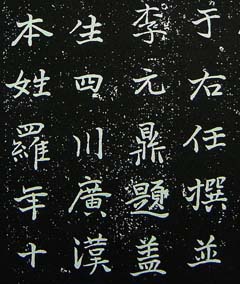 于右任撰並
李元鼎題盖
生四川廣漢
本姓羅年十